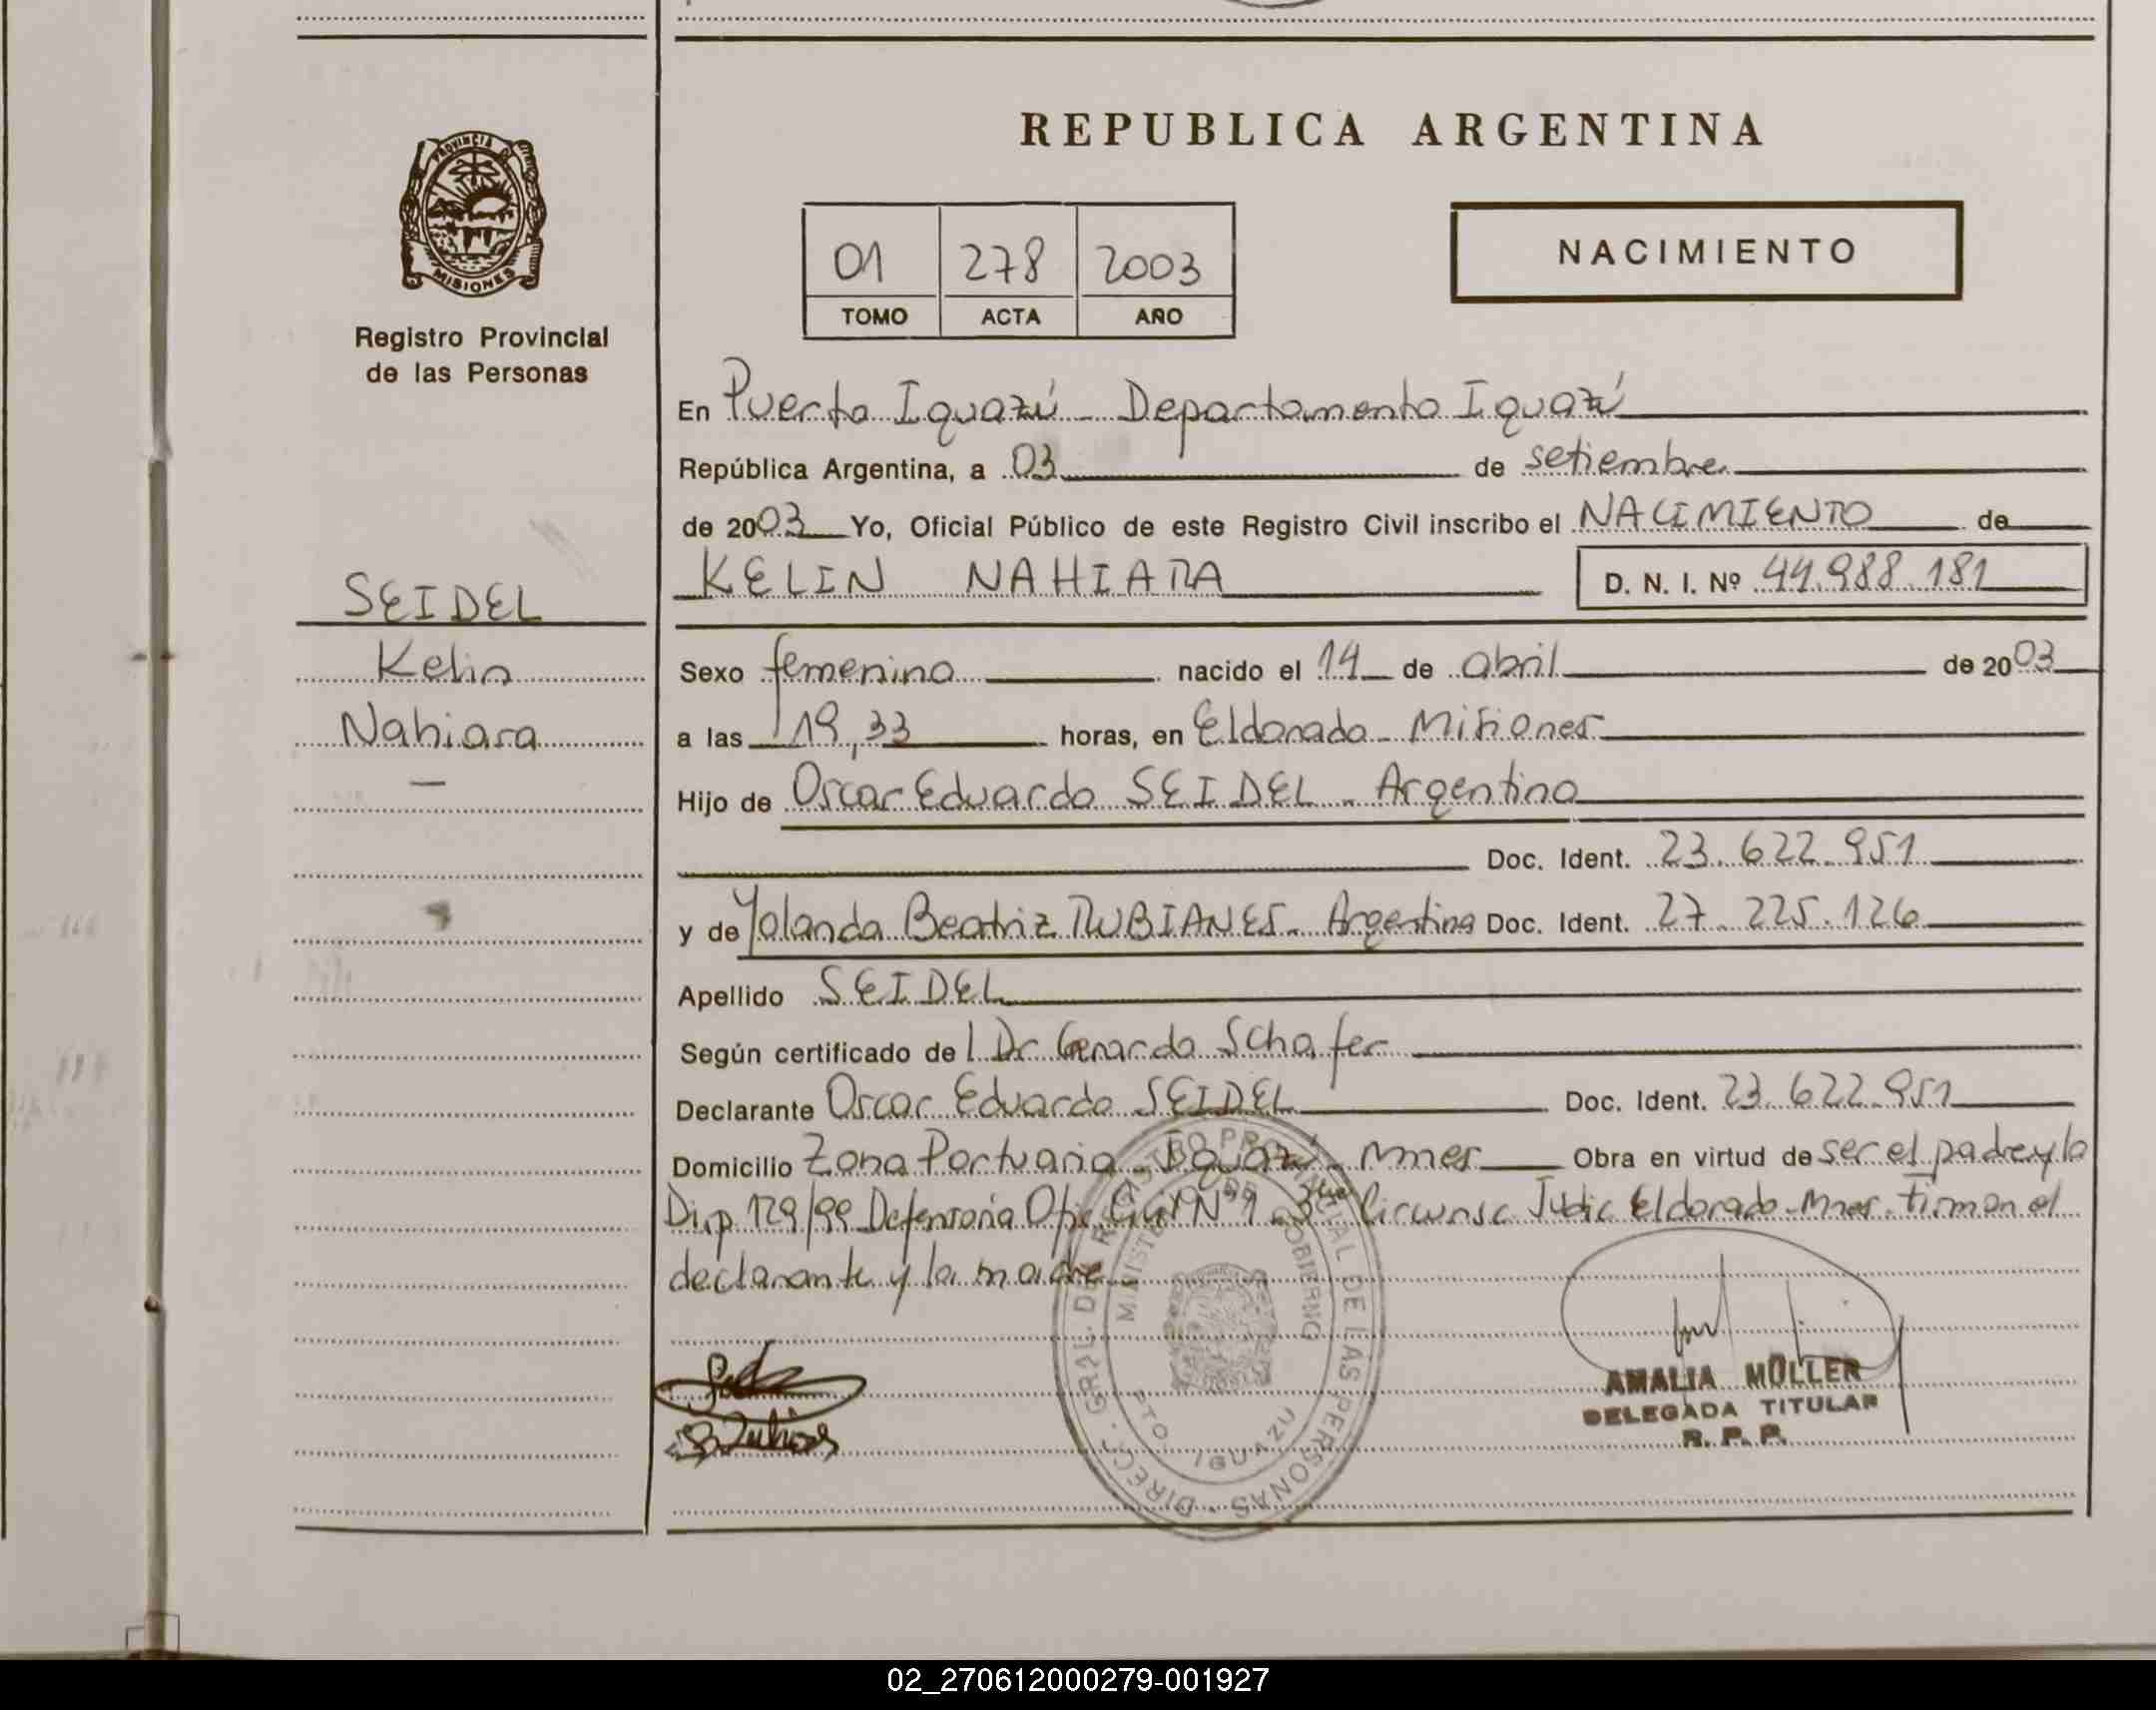 REPUBLICA ARGENTINA
PROVINCIA D
MISIONES
Registro Provincial
de las Personas
01 278 2003
TOMO ACTA AÑO
NACIMIENTO
En Puerto Iguazú - Departamento Iguazú
República Argentina, a 03 de setiembre
de 2003 Yo, Oficial Público de este Registro Civil inscribo el NACIMIENTO de
KELIN NAHIARA D. N. I. Nº 44.988.181
SEIDEL
Kelin
Nahiara
Sexo femenino nacido el 14 de abril de 2003
a las 19,33 horas, en Eldorado - Misiones
Hijo de Oscar Eduardo SEIDEL - Argentino
Doc. Ident. 23.622.951
y de Yolanda Beatriz RUBIANES - Argentina Doc. Ident. 27.225.126
Apellido SEIDEL
Según certificado de l Dr Gerardo Schafer
Declarante Oscar Eduardo SEIDEL Doc. Ident. 23.622.951
Domicilio Zona Portuaria - Iguazú - Mnes Obra en virtud de ser el padre y la
Disp 129/99 Defensoria Ofic Civil Nº 1 3era Circunsc Judic Eldorado - Mnes. Firman el
declarante y la madre
DIRECC. GRAL. DE REGISTRO PROVINCIAL DE LAS PERSONAS
MINISTERIO DE GOBIERNO
PTO. IGUAZU
AMALIA MOLLER
DELEGADA TITULAR
R. P. P.
02_270612000279-001927